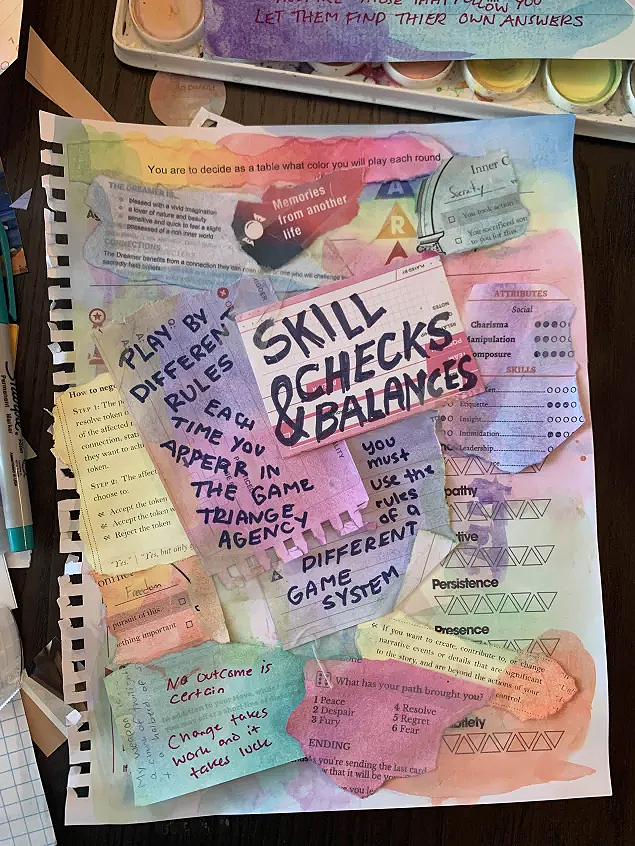 LET THEM FIND THIER OWN ANSWERS
You are to decide as a table what color you will play each round.
THE DREAMER IS...
blessed with a vivid imagination
a lover of nature and beauty
sensitive and quick to feel a slight
possessed of a rich inner world
CONNECTIONS
The Dreamer benefits from a connection they can
sacredly held beliefs.
Memories
from another
life
A
R
A
Inner C
Society
You took action
You sacrificed som
to you for this.
PLAYED BY
NOTES
SKILL
& CHECKS
& BALANCES
ATTRIBUTES
Social
Charisma
Manipulation
omposure
SKILLS
Etiquette
Insight
Intimidation
Leadership
PLAY BY
DIFFERENT
RULES
EACH
TIME YOU
APPERR IN
THE GAME
TRIANGE
AGENCY
you
must
use the
rules
of a
DIFFERENT
GAME
SYSTEM
How to neg
STEP 1: The p
resolve token o
of the affected
connection, stat
they want to achi
token.
STEP 2: The affect
choose to:
Accept the token
Accept the token w
Reject the token
"Yes," | "Yes, but only
pathy
tive
Persistence
Presence
Freedom
pursuit of this.
ething important
If you want to create, contribute to, or change
narrative events or details that are significant
to the story, and are beyond the actions of your
control.
NO OUTCOME IS
CERTAIN
Change takes
work and it
takes luck
What has your path brought you?
1 Peace
2 Despair
3 Fury
4 Resolve
5 Regret
6 Fear
ENDING
you're sending the last card
that it will be